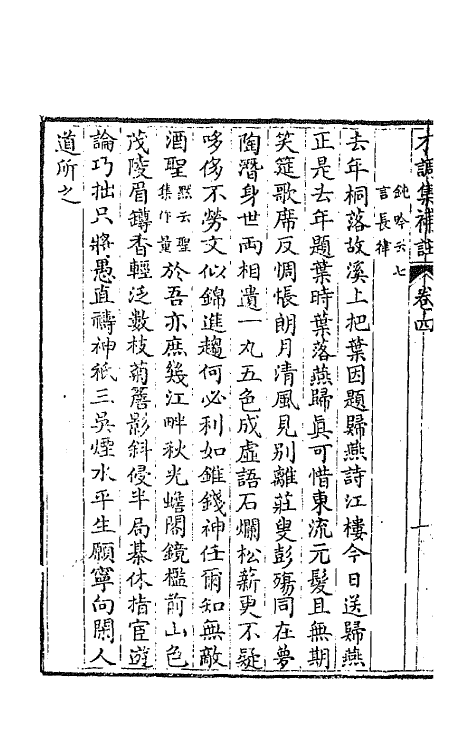 才調集補註 卷四
鈍吟云七
言長律
去年桐落故溪上把葉因題歸燕詩江樓今日送歸燕
正是去年題葉時葉落燕歸眞可惜東流元髮且無期
笑筵歌席反惆悵朗月清風見別離莊叟彭殤同在夢
陶潛身世兩相遺一丸五色成虛語石爛松薪更不疑
哆侈不勞文似錦進趨何必利如錐錢神任爾知無敵
酒聖默云聖集作量於吾亦庶幾江畔秋光蟾閣鏡檻前山色
茂陵眉罇香輕泛數枝菊簷影斜侵半局棊休指宦遊
論巧拙只將愚直禱神祇三吳煙水平生願寧向閑人
道所之